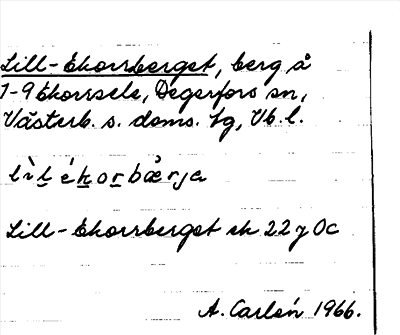 Lill-Ekorrberget, berg å
7-9 Ekorrsele, Degerfors sn,
Västerb. s. doms. tg, Vb. l.
lìḻ éḵoṟbæ̊rja
Lill-Ekorrberget ek 22 7 0c
A. Carlén 1966.